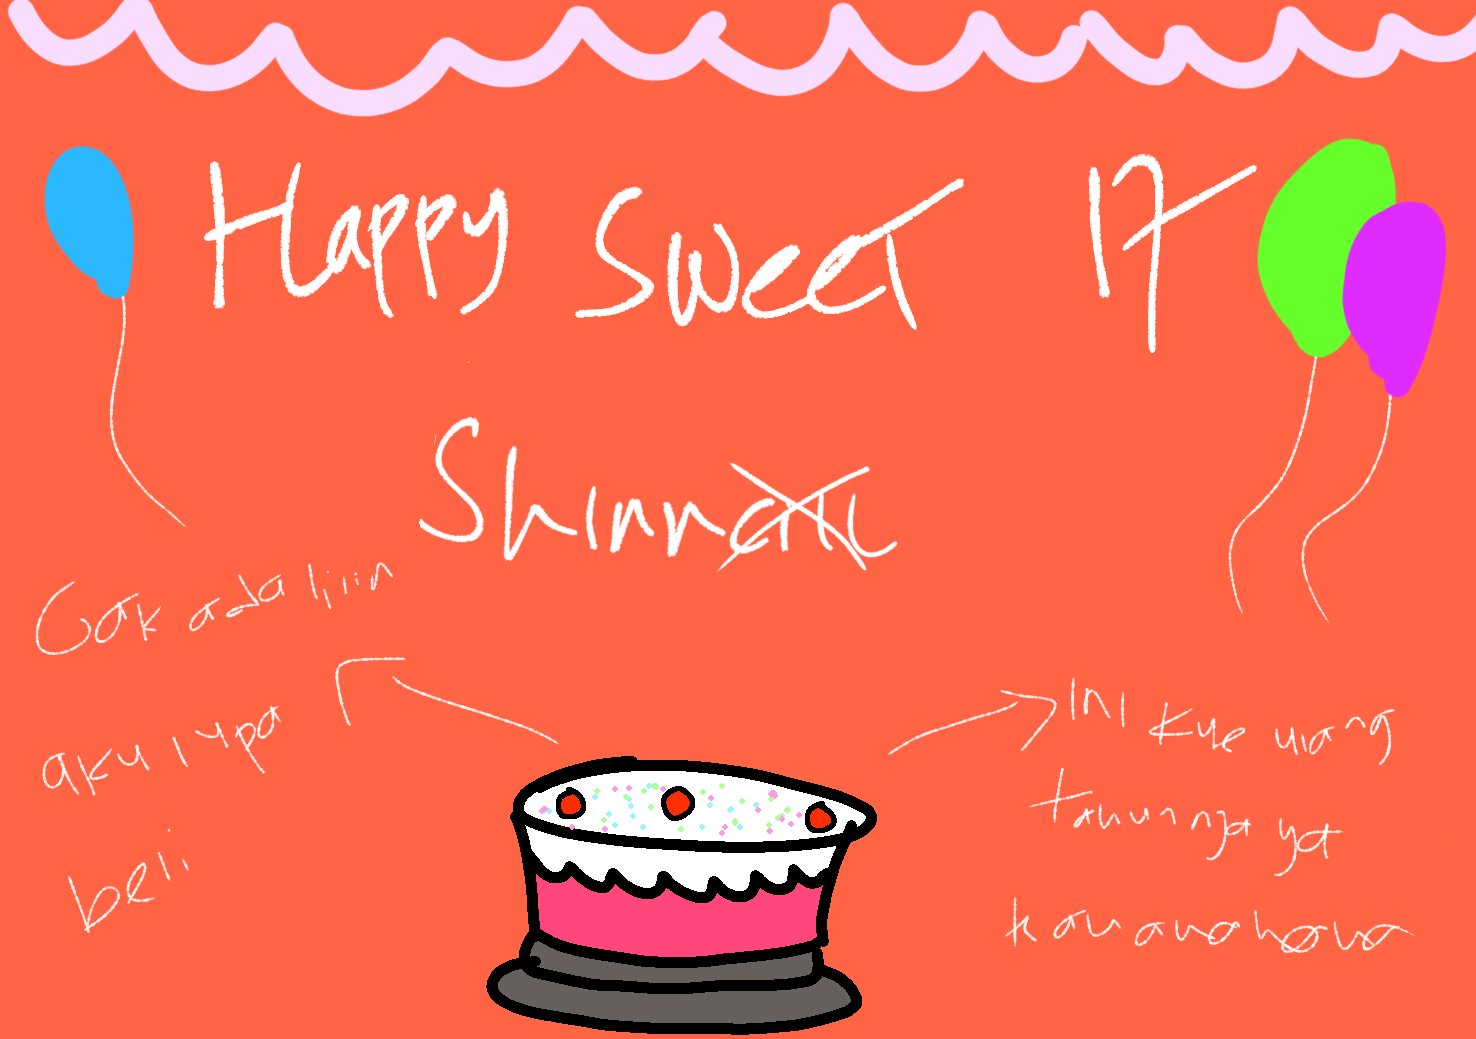 Happy Sweet 17
Shinn
Gak ada lilin
aku lupa
beli
Ini kue ulang
tahunnya ya